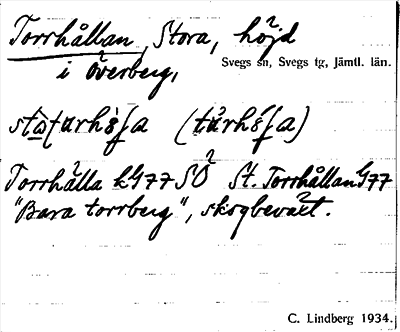 Torrhållan, Stora, höjd
i Överberg,
Svegs sn, Svegs tg, Jämtl. län.
Torrhålla k G77 SÖ St. Torrhållan G77
"Bara torrberg", skogbeväxt.
C. Lindberg 1934.